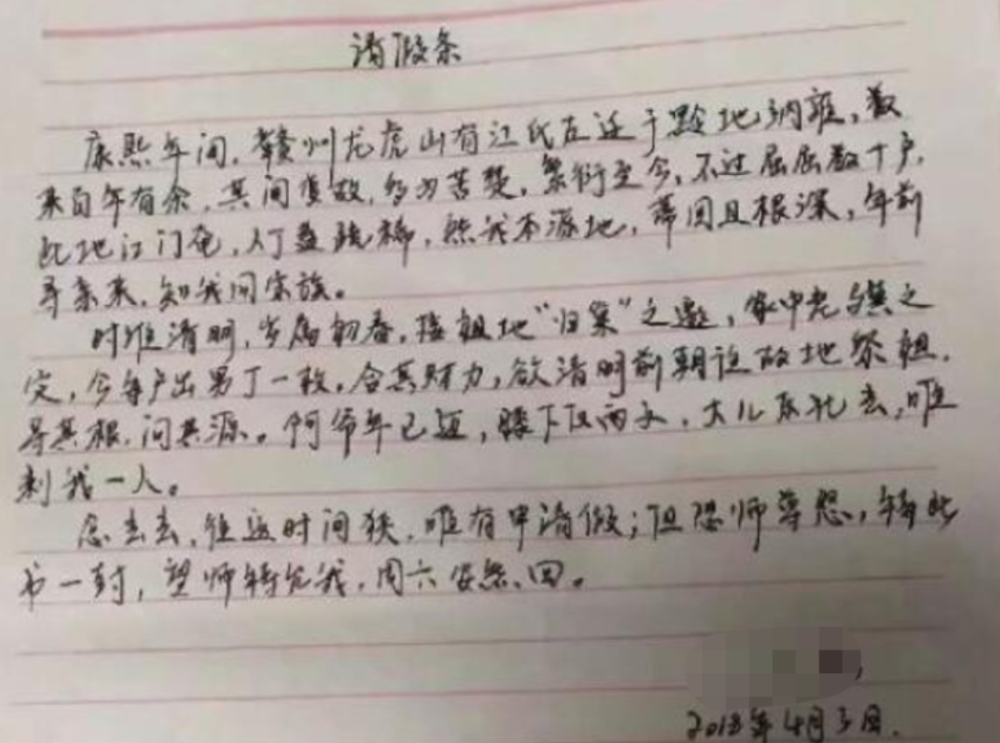 请假条
康熙年间,赣州龙虎山有江氏左迁于黔地纳雍,数
来百年有余,其间变故,多为苦楚,繁衍至今,不过屈屈数十户,
此地江门庭,人丁甚疏稀,然我本源地,蒂固且根深,年前
寻亲来,知我同宗族。
时维清明,岁属初春,接祖地“归巢”之邀,家中老
定,今每户出男丁一枚,合其财力,欲清明前朝设故地祭祖,
寻其根,问其源。阿爷年已迈,膝下仅两文,大儿东北去,唯
剩我一人。
念去去,往返时间狭,唯有申请假;但恐师尊怒,特此
书一封,望师特允我,周六安然回。
2018年4月3日.